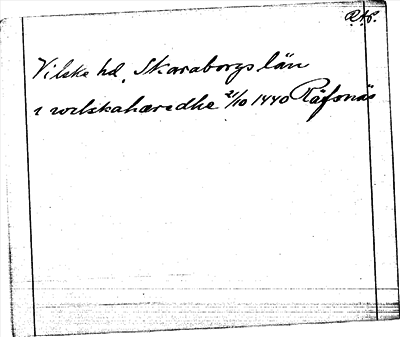 RAP.
Vilske hd. Skaraborgs län
i wilskahæredhe 21/10 1440 Räfsnäs